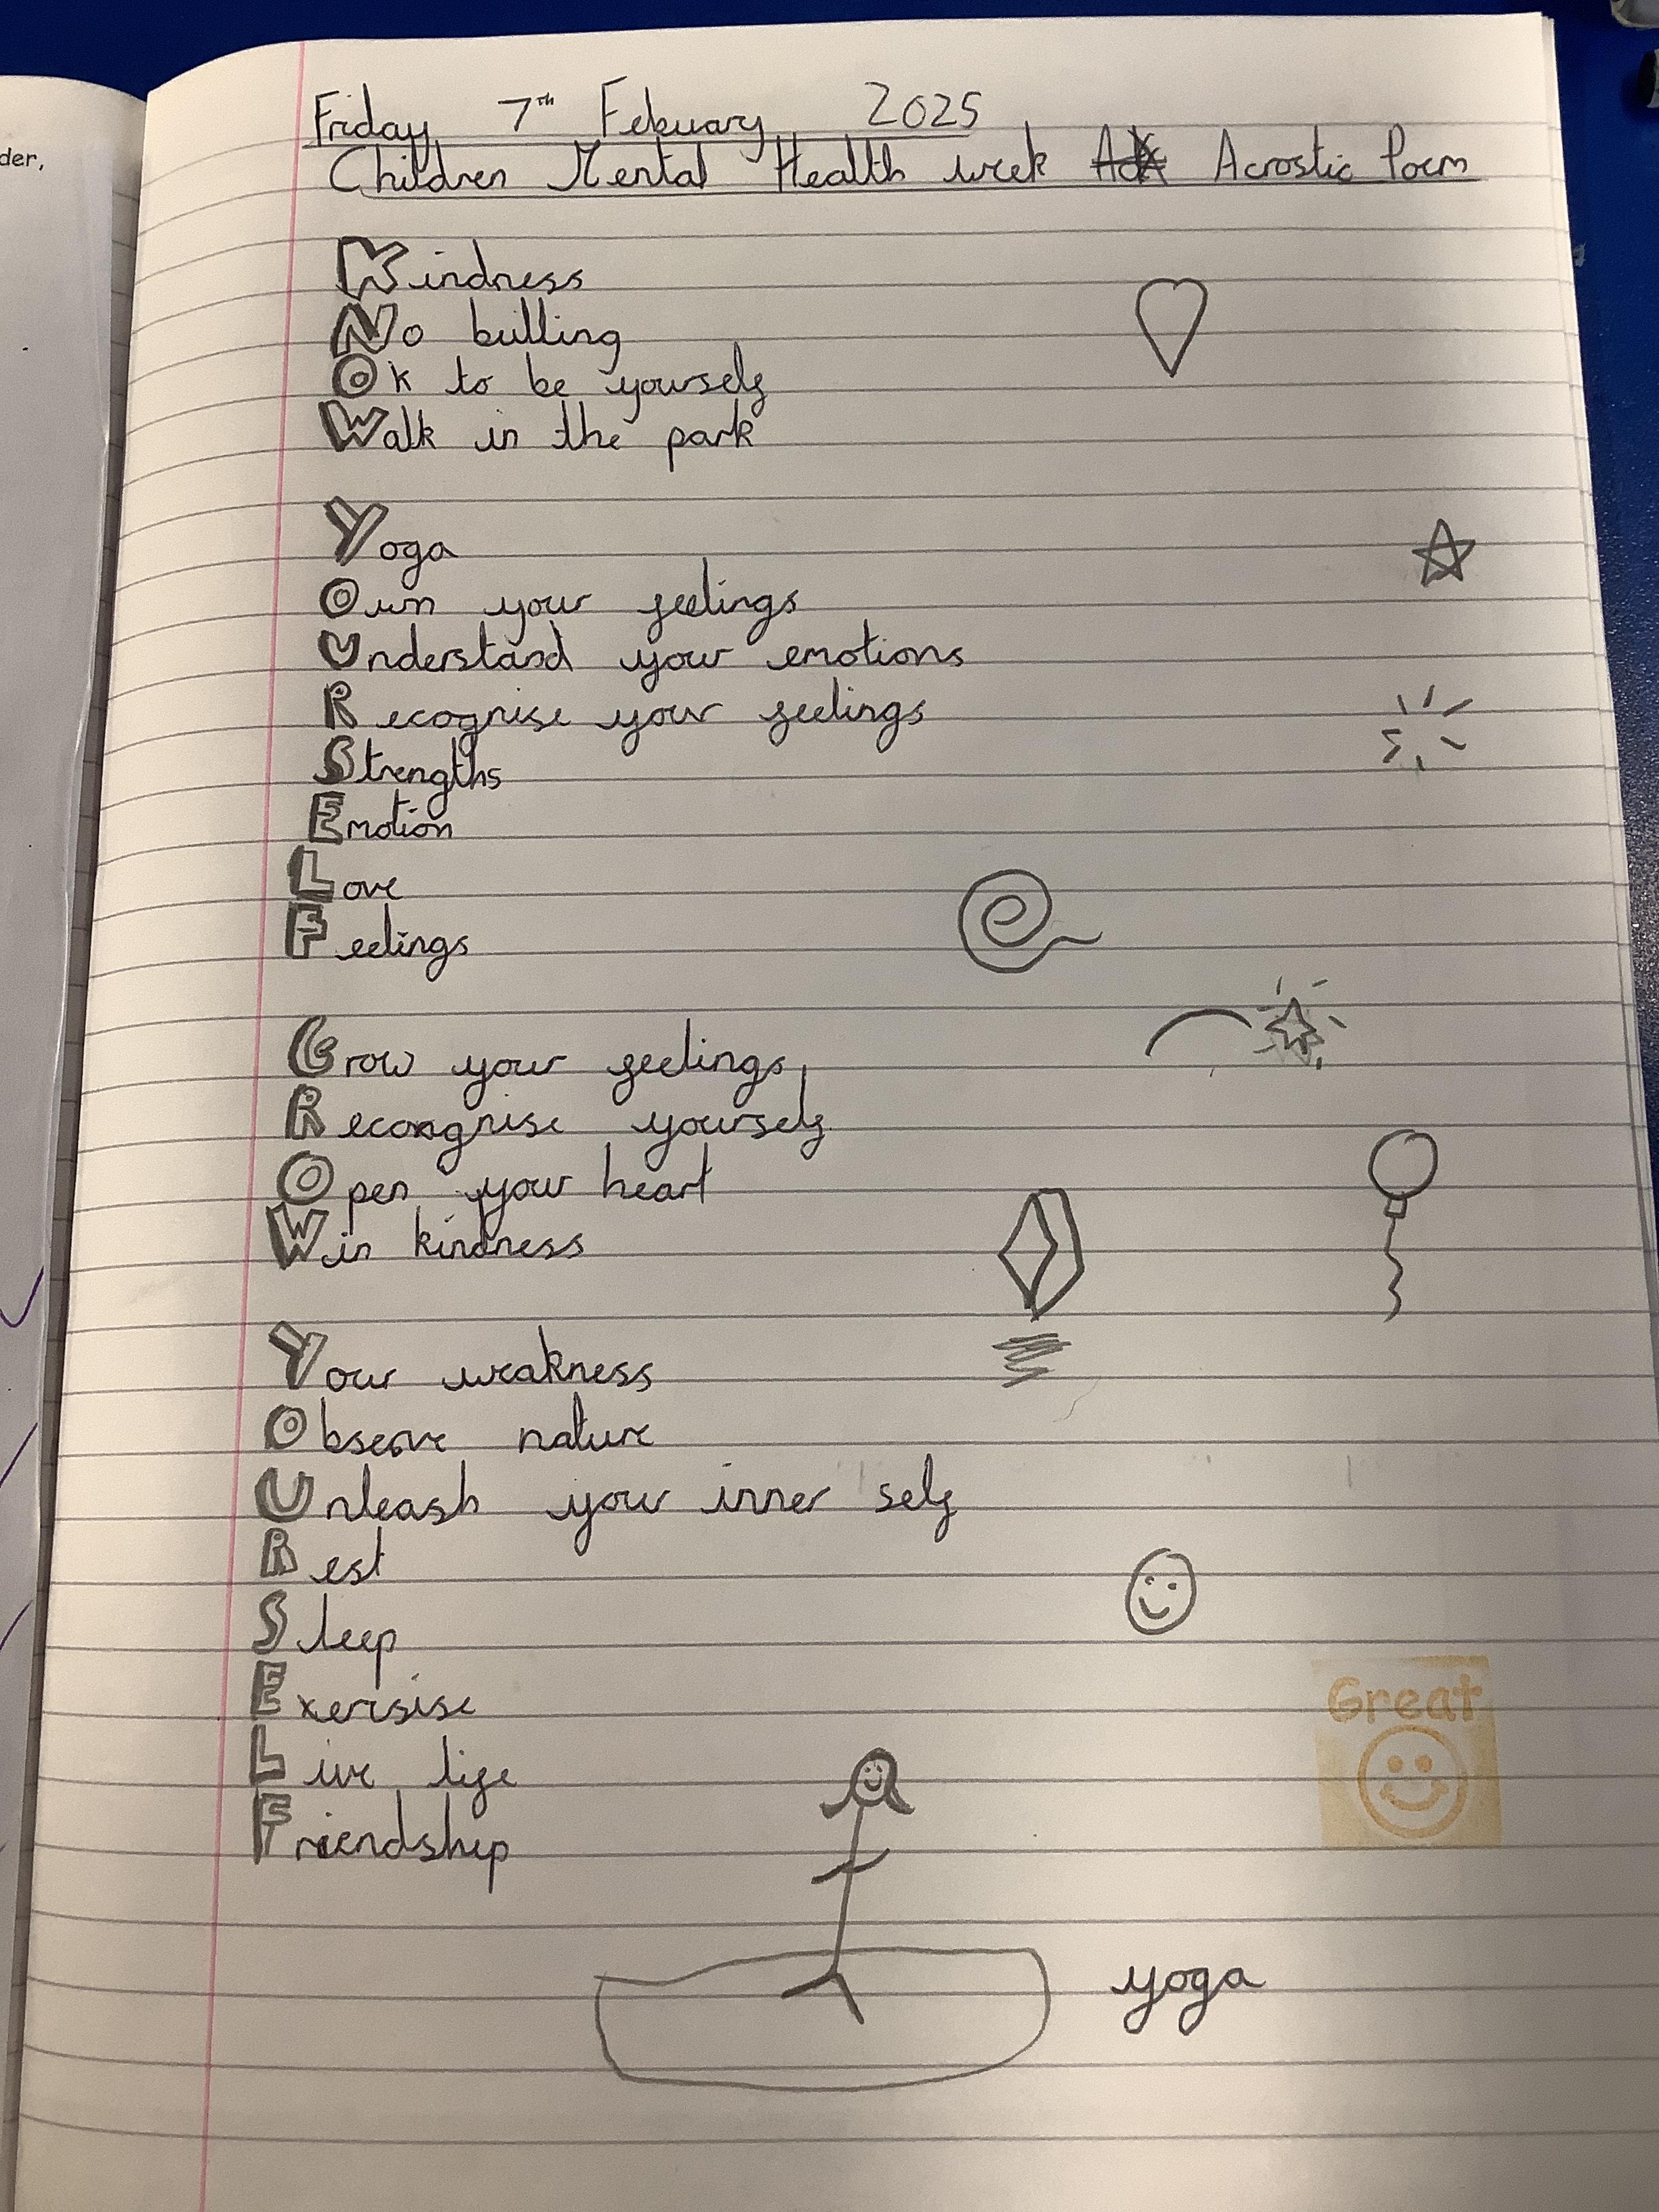 der,
Friday 7th Febuary 2025
Children Mental Health week Acrostic Poem
Kindness
No billing
Ok to be yourself
Walk in the park
Yoga
Own your feelings
Understand your emotions
Recognise your feelings
Strengths
Emotion
Love
Feelings
Grow your feelings
Recongnise yourself
Open your heart
Win kindness
Your weakness
Observe nature
Unleash your inner self
Rest
Sleep
Exersise
Live life
Friendship
Great
yoga